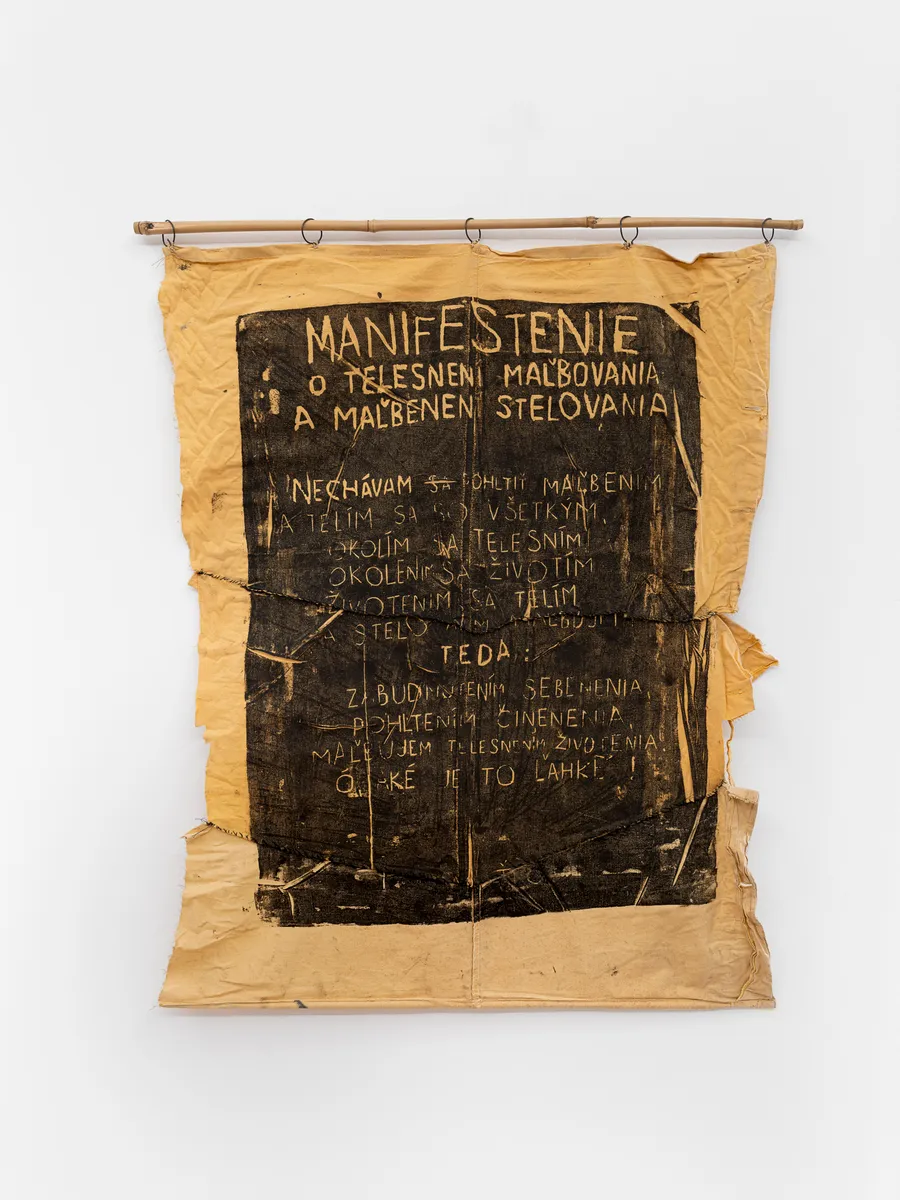 MANIFESTENIE
O TELESNENÍ MAĽBOVANIA
A MAĽBENENÍ STELOVANIA
NECHÁVAM SA POHLTIŤ MAĽBENÍM
A TELÍM SA SO VŠETKÝM,
OKOLÍM SA TELESNÍM
OKOLENÍM SA ŽIVOTÍM
ŽIVOTENÍM SA TELÍM
A
TEDA :
ZABUDNUTENÍM SEBENENIA,
POHLTENÍM ČINENENIA,
MAĽBUJEM TELESNENÍM ŽIVOTENIA!
Ó, AKÉ JE TO ĽAHKÉ !